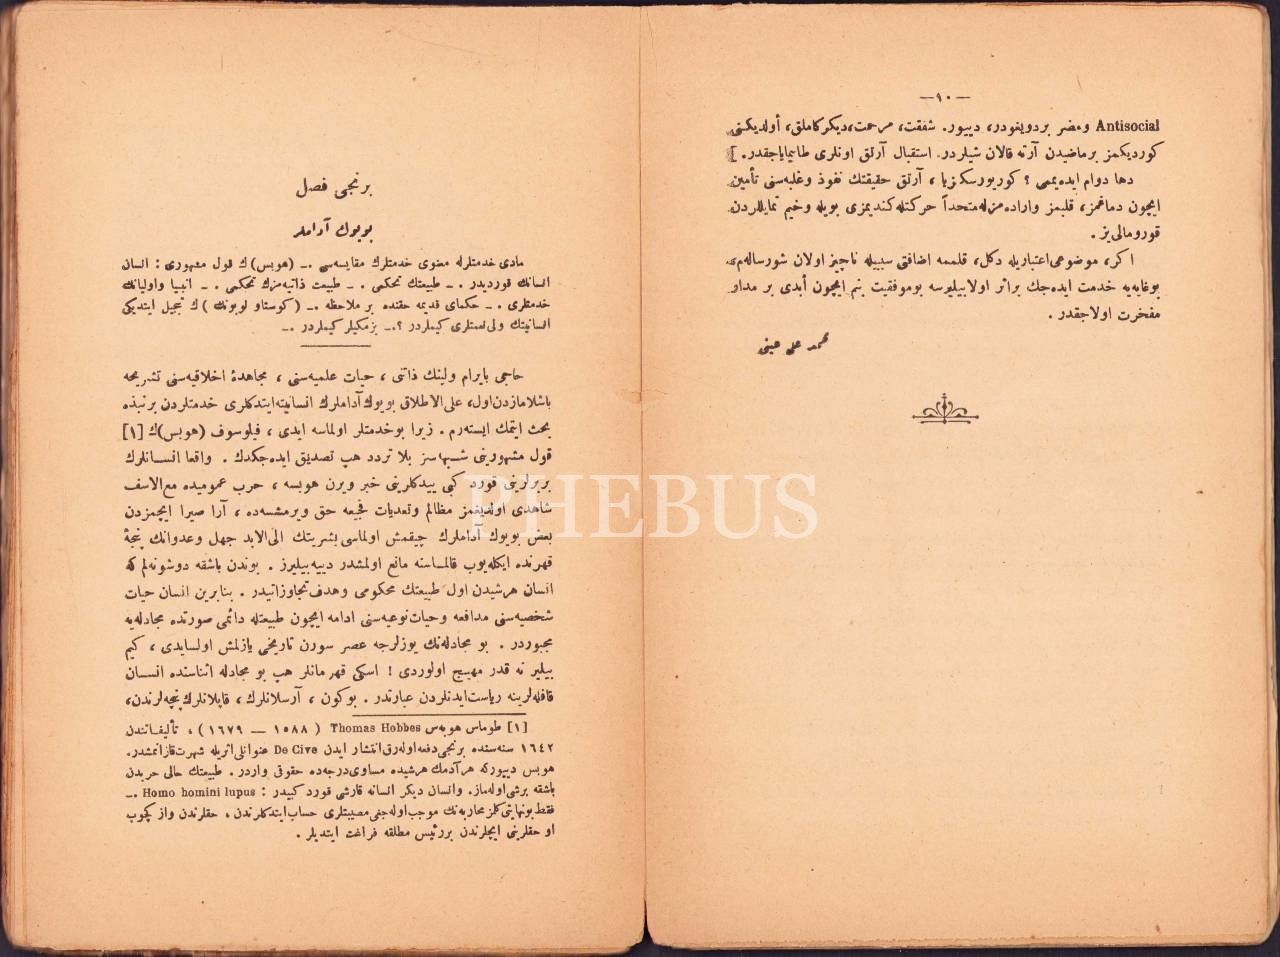 —١٠—
Antisocial ومضر بردويغودر، دييور. شفقت، مرحمت، ديكركاملق، أولديكنى
كورديكمز برماضيدن آرته قالان شيلردر. استقبال آرتق اونلرى طانيماياجقدر. ]
دها دوام ايده‌يممى ؟ كوريورسكزيا ، آرتق حقيقتك نفوذ وغلبه‌سنى تأمين
ايچون دماغمز، قلبمز واراده‌مزله متحداً حركتله كنديمزى بويله وخيم تمايللردن
قورومالى‌يز.
اكر، موضوعى اعتباريله دكل، قلممه اضافتى سببيله ناچيز اولان شورساله‌م،
بوغايه‌يه خدمت ايده‌جك براثر اولابيليرسه بوموفقيت بنم ايچون أبدى بر مدار
مفخرت اولاجقدر .
محمد على عينى
برنجى فصل
بويوك آداملر
مادى خدمتلرله معنوى خدمتلرك مقايسه‌سى .ـ (هوبس)ك قول مشهورى : انسان
انسانك قورديدر . ـ طبيعتك تحكمى . ـ طبيعت ذاتيه‌مزك تحكمى . ـ انبيا واوليانك
خدمتلرى . ـ حكماى قديمه حقنده بر ملاحظه .ـ (كوستاو لوبونك ) ك تبجيل ايتديكى
انسانيتك ولى‌نعمتلرى كيملردر ؟.ـ بزمكيلر كيملردر .ـ
حاجى بايرام ولينك ذاتى ، حيات علميه‌سنى ، مجاهدۀ اخلاقيه‌سنى تشريحه
باشلامازدن اول، على‌الاطلاق بويوك آداملرك انسانيته ايتدكلرى خدمتلردن برنبذه
بحث ايتمك ايسته‌رم . زيرا بوخدمتلر اولماسه ايدى ، فيلوسوف (هوبس)ك [١]
قول مشهورينى شبهه‌سز بلا تردد هپ تصديق ايده‌جكدك . واقعا انسانلرك
بربرلرينى قورد كبى ييدكلرينى خبر ويرن هوبسه ، حرب عموميده مع‌الاسف
شاهدى اولديغمز مظالم وتعديات فجيعه حق ويرمشسه‌ده ، آرا صيرا ايچمزدن
بعض بويوك آداملرك چيقمش اولماسى بشريتك الى‌الابد جهل وعدوانك پنجۀ
قهرنده ايكله‌يوب قالماسنه مانع اولمشدر دييه‌بيليرز . بوندن باشقه دوشونه‌لم كه
انسان هرشيدن اول طبيعتك محكومى وهدف تجاوزاتيدر . بنابرين انسان حيات
شخصيه‌سنى مدافعه وحيات نوعيه‌سنى ادامه ايچون طبيعتله دائمى صورتده مجادله‌يه
مجبوردر . بو مجادله‌نك يوزلرجه عصر سورن تاريخى يازلمش اولسايدى ، كيم
بيلير نه قدر مهيج اولوردى ! اسكى قهرمانلر هپ بو مجادله اثناسنده انسان
قافله‌لرينه رياست ايدنلردن عبارتدر . بوكون ، آرسلانلرك ، قاپلانلرك پنچه‌لرندن،
[١] طوماس هوبه‌س Thomas Hobbes ( ١٥٨٨ — ١٦٧٩ ) ، تأليفاتندن
١٦٤٢ سنه‌سنده برنجى دفعه اوله‌رق انتشار ايدن De Cive عنوانلى اثريله شهرت قازانمشدر.
هوبس دييوركه هر آدمك هرشيده مساوى درجه‌ده حقوقى واردر . طبيعتك حالى حربدن
باشقه برشى اوله‌ماز. وانسان ديكر انسانه قارشى قورد كبيدر : Homo homini lupus .ـ
فقط بونهايتى كلمز محاربه‌نك موجب اوله‌جغى مصيبتلرى حساب ايتدكلرندن ، حقلرندن واز كچوب
او حقلرينى ايچلرندن بررئيس مطلقه فراغت ايتديلر .
PHEBUS